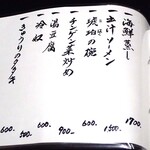 一 海鮮蒸し 1700.
一 土汁ソーメン 500.
一 琥珀の椀 600.
一 チンゲン菜炒め 900.
一 湯豆腐 600.
一 冷奴 500.
一 きゅうりのタタキ 600.